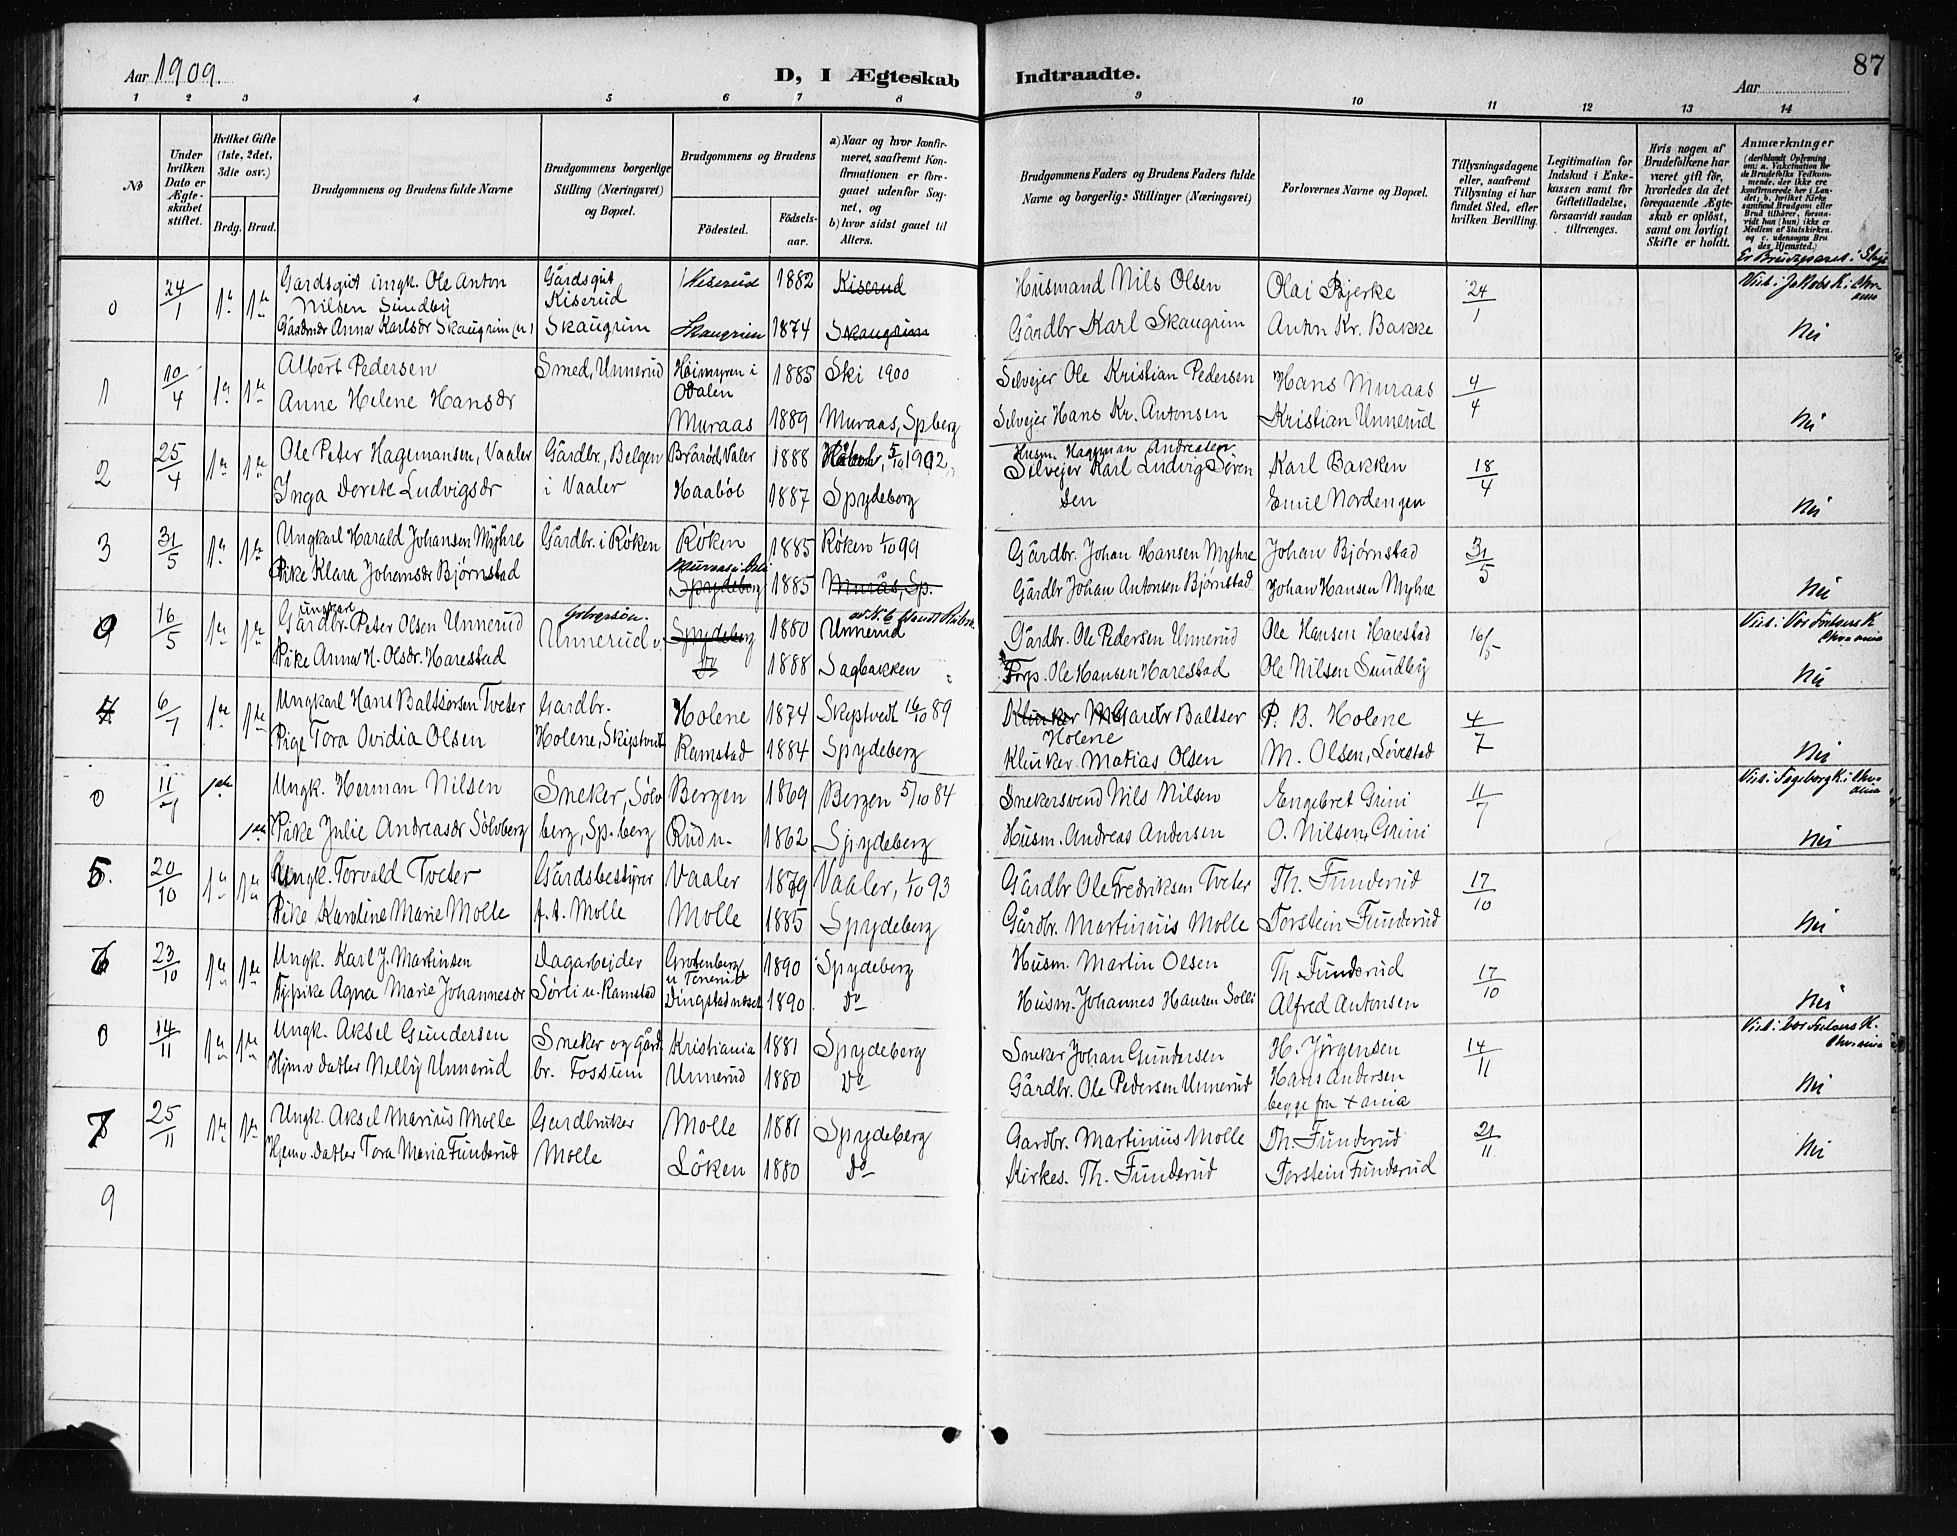 87
Aar 1909.
D, I Ægteskab Indtraadte.
Aar
1 2 3 4 5 6 7 8 9 10 11 12 13 14
№
Under hvilken Dato er Ægteskabet stiftet.
Hvilket Gifte (1ste, 2det, 3die osv.)
Brdg. Brud.
Brudgommens og Brudens fulde Navne
Brudgommens borgerlige Stilling (Næringsvei) og Bopæl.
Brudgommens og Brudens
Fødested.
Fødselsaar.
a) Naar og hvor konfirmeret, saafremt Konfirmationen er foregaaet udenfor Sognet, og
b) hvor sidst gaaet til Alters.
Brudgommens Faders og Brudens Faders fulde Navne og borgerlige Stillinger (Næringsvei)
Forlovernes Navne og Bopæl.
Tillysningsdagene eller, saafremt Tillysning ei har fundet Sted, efter hvilken Bevilling.
Legitimation for Indskud i Enkekassen samt for Giftetilladelse, forsaavidt saadan tiltrænges.
Hvis nogen af Brudefolkene har været gift før, hvorledes da det foregaaende Ægteskab er opløst, samt om lovligt Skifte er holdt.
Anmærkninger
(deriblandt Oplysning om: a. Vakcination for de Brudefolks Vedkommende, der ikke ere konfirmerede her i Landet; b. hvilket Kirkesamfund Brudgom eller Brud tilhører, forsaavidt han (hun) ikke er Medlem af Statskirken. og c. udensogns Brudes Hjemsted.)
Er Brudeparret i Slægt
0 24/1 1ste 1ste Gårdsgut Ungk. Ole Anton Gårdsgut Kiserud 1882 Kiserud Husmand Nils Olsen Olai Bjerke 24/1 Viet i Jakobs K. i Chr-ania
Nilsen Sundby Kiserud
Gårdmdr Anna Karlsdr Skaugrim (u) Skaugrim Skaugrim 1874 Skaugrim Gårdbr Karl Skaugrim Anton Kr. Bakke Nei
1 10/4 1ste 1ste Albert Pedersen Smed, Unnerud Heimyren i Odalen 1885 Ski 1900 Selvejer Ole Kristian Pedersen Hans Muraas 4/4
Anne Helene Hansdr Muraas 1889 Muraas, Spberg Selvejer Hans Kr. Antonsen Kristian Unnerud Nei
2 25/4 1ste 1ste Ole Peter Hagemansen, Vaaler Gårdbr., Belgen Brårød, Våler 1888 5/10 1902 Husm. Hageman Andreasen Karl Bakken 18/4
Inga Dorete Ludvigsdr i Vaaler Haabøl 1887 Spydeberg Selvejer Karl Ludvig Søren Emil Nordengen
sen Nei
3 31/5 1ste 1ste Ungkarl Harald Johansen Myhre Gårdbr. i Røken Røken 1885 Røken 1/10 99 Gårdbr. Johan Hansen Myhre Johan Bjørnstad 31/5
Pike Klara Johansdr Bjørnstad Spydeberg 1885 Murås, Sp. Gårdbr Johan Antonsen Bjørnstad Johan Hansen Myhre Nei
0 16/5 1ste 1ste Ungkarl Gårdbr. Peter Olsen Unnerud Gårdbrsøn. Unnerud Spydeberg 1880 Unnerud Gårdbr. Ole Pedersen Unnerud Ole Hansen Harestad 16/5 Viet i Vor Frelsers K Chr-ania
Pike Anna H. Olsdr. Harestad Do 1888 Sagbakken Torp. Ole Hansen Harestad Ole Nilsen Sundby Nei
4 6/7 1ste 1ste Ungkarl Hans Baltsersen Tveter Gårdbr. Holene 1874 Skiptvedt 16/10 89 Klinker Gårdbr Baltser Holene P. B. Holene 4/7
Pige Tora Ovidia Olsen Holene, Skiptvedt Ramstad 1884 Spydeberg Klinker Matias Olsen M. Olsen, Løvestad Nei
0 11/7 1ste Ungk. Herman Nilsen Sneker, Sølv Bergen 1869 Bergen 5/10 84 Snekersvend Nils Nilsen Engebret Grini 11/7 Viet i Fagerborg K. i Chr-ania
1ste Pike Julie Andreasdr Sølvberg berg, Sp.berg Rud u. 1862 Spydeberg Husm. Andreas Andersen O. Nilsen, Grini Nei
5. 20/10 1ste 1ste Ungk. Torvald Tveter Gårdsbestyrer Vaaler 1879 Vaaler, 1/10 93 Gårdbr Ole Fredriksen Tveter Th. Funderud 17/10
Pike Karoline Marie Molle f.t. Molle Molle 1885 Spydeberg Gårdbr. Martinius Molle Torstein Funderud Nei
6 23/10 1ste 1ste Ungk. Karl J. Martinsen Dagarbeider Grotenberg 1890 Spydeberg Husm. Martin Olsen Th. Funderud 17/10
Tj.pike Agna Marie Johannesdr Sørli u. Ramstad Dingstadneset 1890 Do Husm. Johannes Hansen Solli Alfred Antonsen Nei
0 14/11 1ste 1ste Ungk. Aksel Gundersen Sneker og Gård Kristiania 1881 Spydeberg Sneker Johan Gundersen H. Jørgensen 14/11 Viet i Vor Frelsers K. Chr-ania
Hjemv datter Nelly Unnerud br. Fossum Unnerud 1880 Do Gårdbr. Ole Pedersen Unnerud Hans Andersen Nei
begge fra Xania
7 25/11 1ste 1ste Ungk. Aksel Marius Molle Gardbruker Molle 1881 Spydeberg Gardbr. Martinius Molle Th. Funderud 21/11
Hjemv. datter Tora Maria Funderud Molle Løken 1880 Do Kirkes. Th. Funderud Torstein Funderud Nei
9